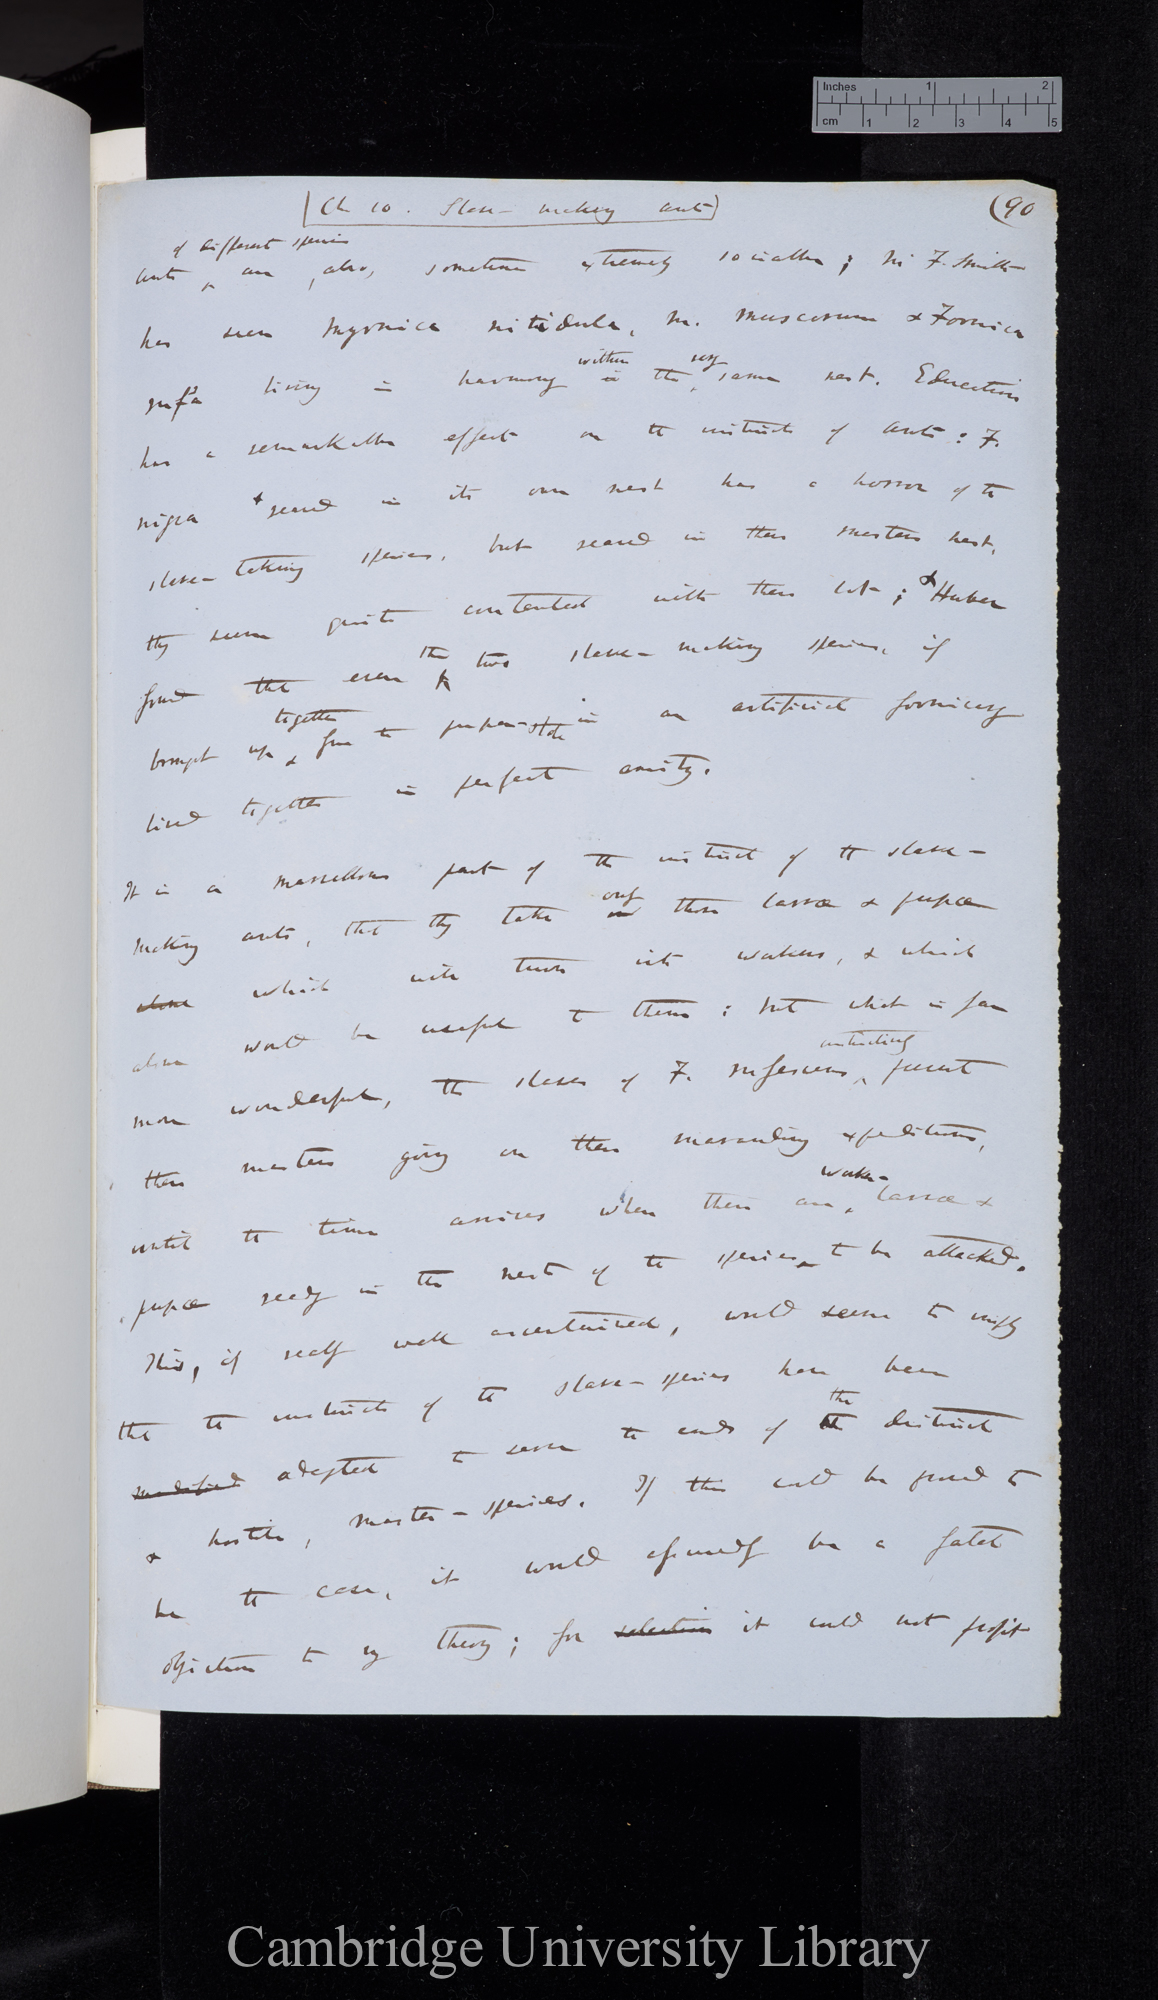 Inches 1 2
cm 1 2 3 4 5
Ch 10. Slave-making ants
(90
of different species
ants are, also, sometimes extremely sociable; Mr F. Smith
has seen Myrmica nitidula, M. muscorum & Formica
within very
rufa living in harmony in the same nest. Education
has a remarkable effect on the instincts of ants: F.
nigra reared in its own nest has a horror of the
slave-taking species, but reared in their masters nest,
they seem quite contented with their lot; & Huber
the
found that even two slave-making species, if
together
brought up from the pupa-state in an artificial formicary
lived together in perfect amity.
It is a marvellous part of the instinct of the slave-
only
making ants, that they take those larvæ & pupæ
alone which will turn into workers, & which
alone would be useful to them: but what is far
instinctively
more wonderful, the slaves of F. rufescens, prevent
their masters going on their marauding expeditions,
worker-
until the time arrives when there are, larvæ &
pupæ ready in the nest of the species to be attacked.
This, if really well ascertained, would seem to imply
that the instincts of the slave-species have been
the
modified adapted to serve the ends of the distinct
& hostile, master-species. If this could be proved to
be the case, it would assuredly be a fatal
objection to my theory; for selection it could not profit
Cambridge University Library